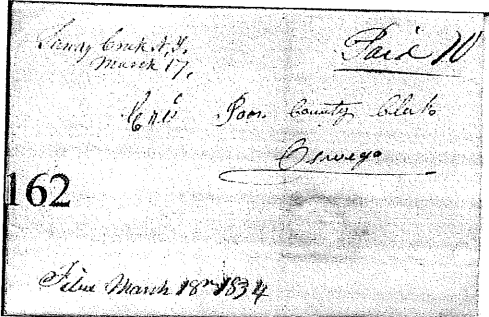 Sandy Creek N.Y. Paid 10
March 17,
Poor County Clerk
Oswego
162
Filed March 18th 1834